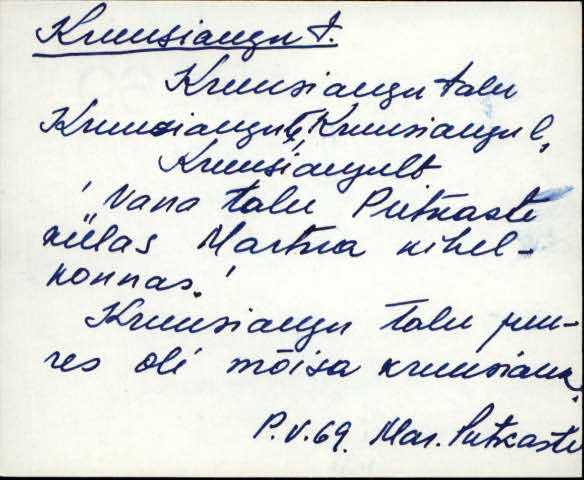 Kruusiaugu t.
Kruusiaugu talu
Kruusiaugul, Kruusiaugul,
Kruusiaugult
'Vana talu Putkaste
külas Martna kihel-
konnas.'
Kruusiaugu talu juu-
res oli mõisa kruusiauk.
P.V. 69. Mar. Putkaste